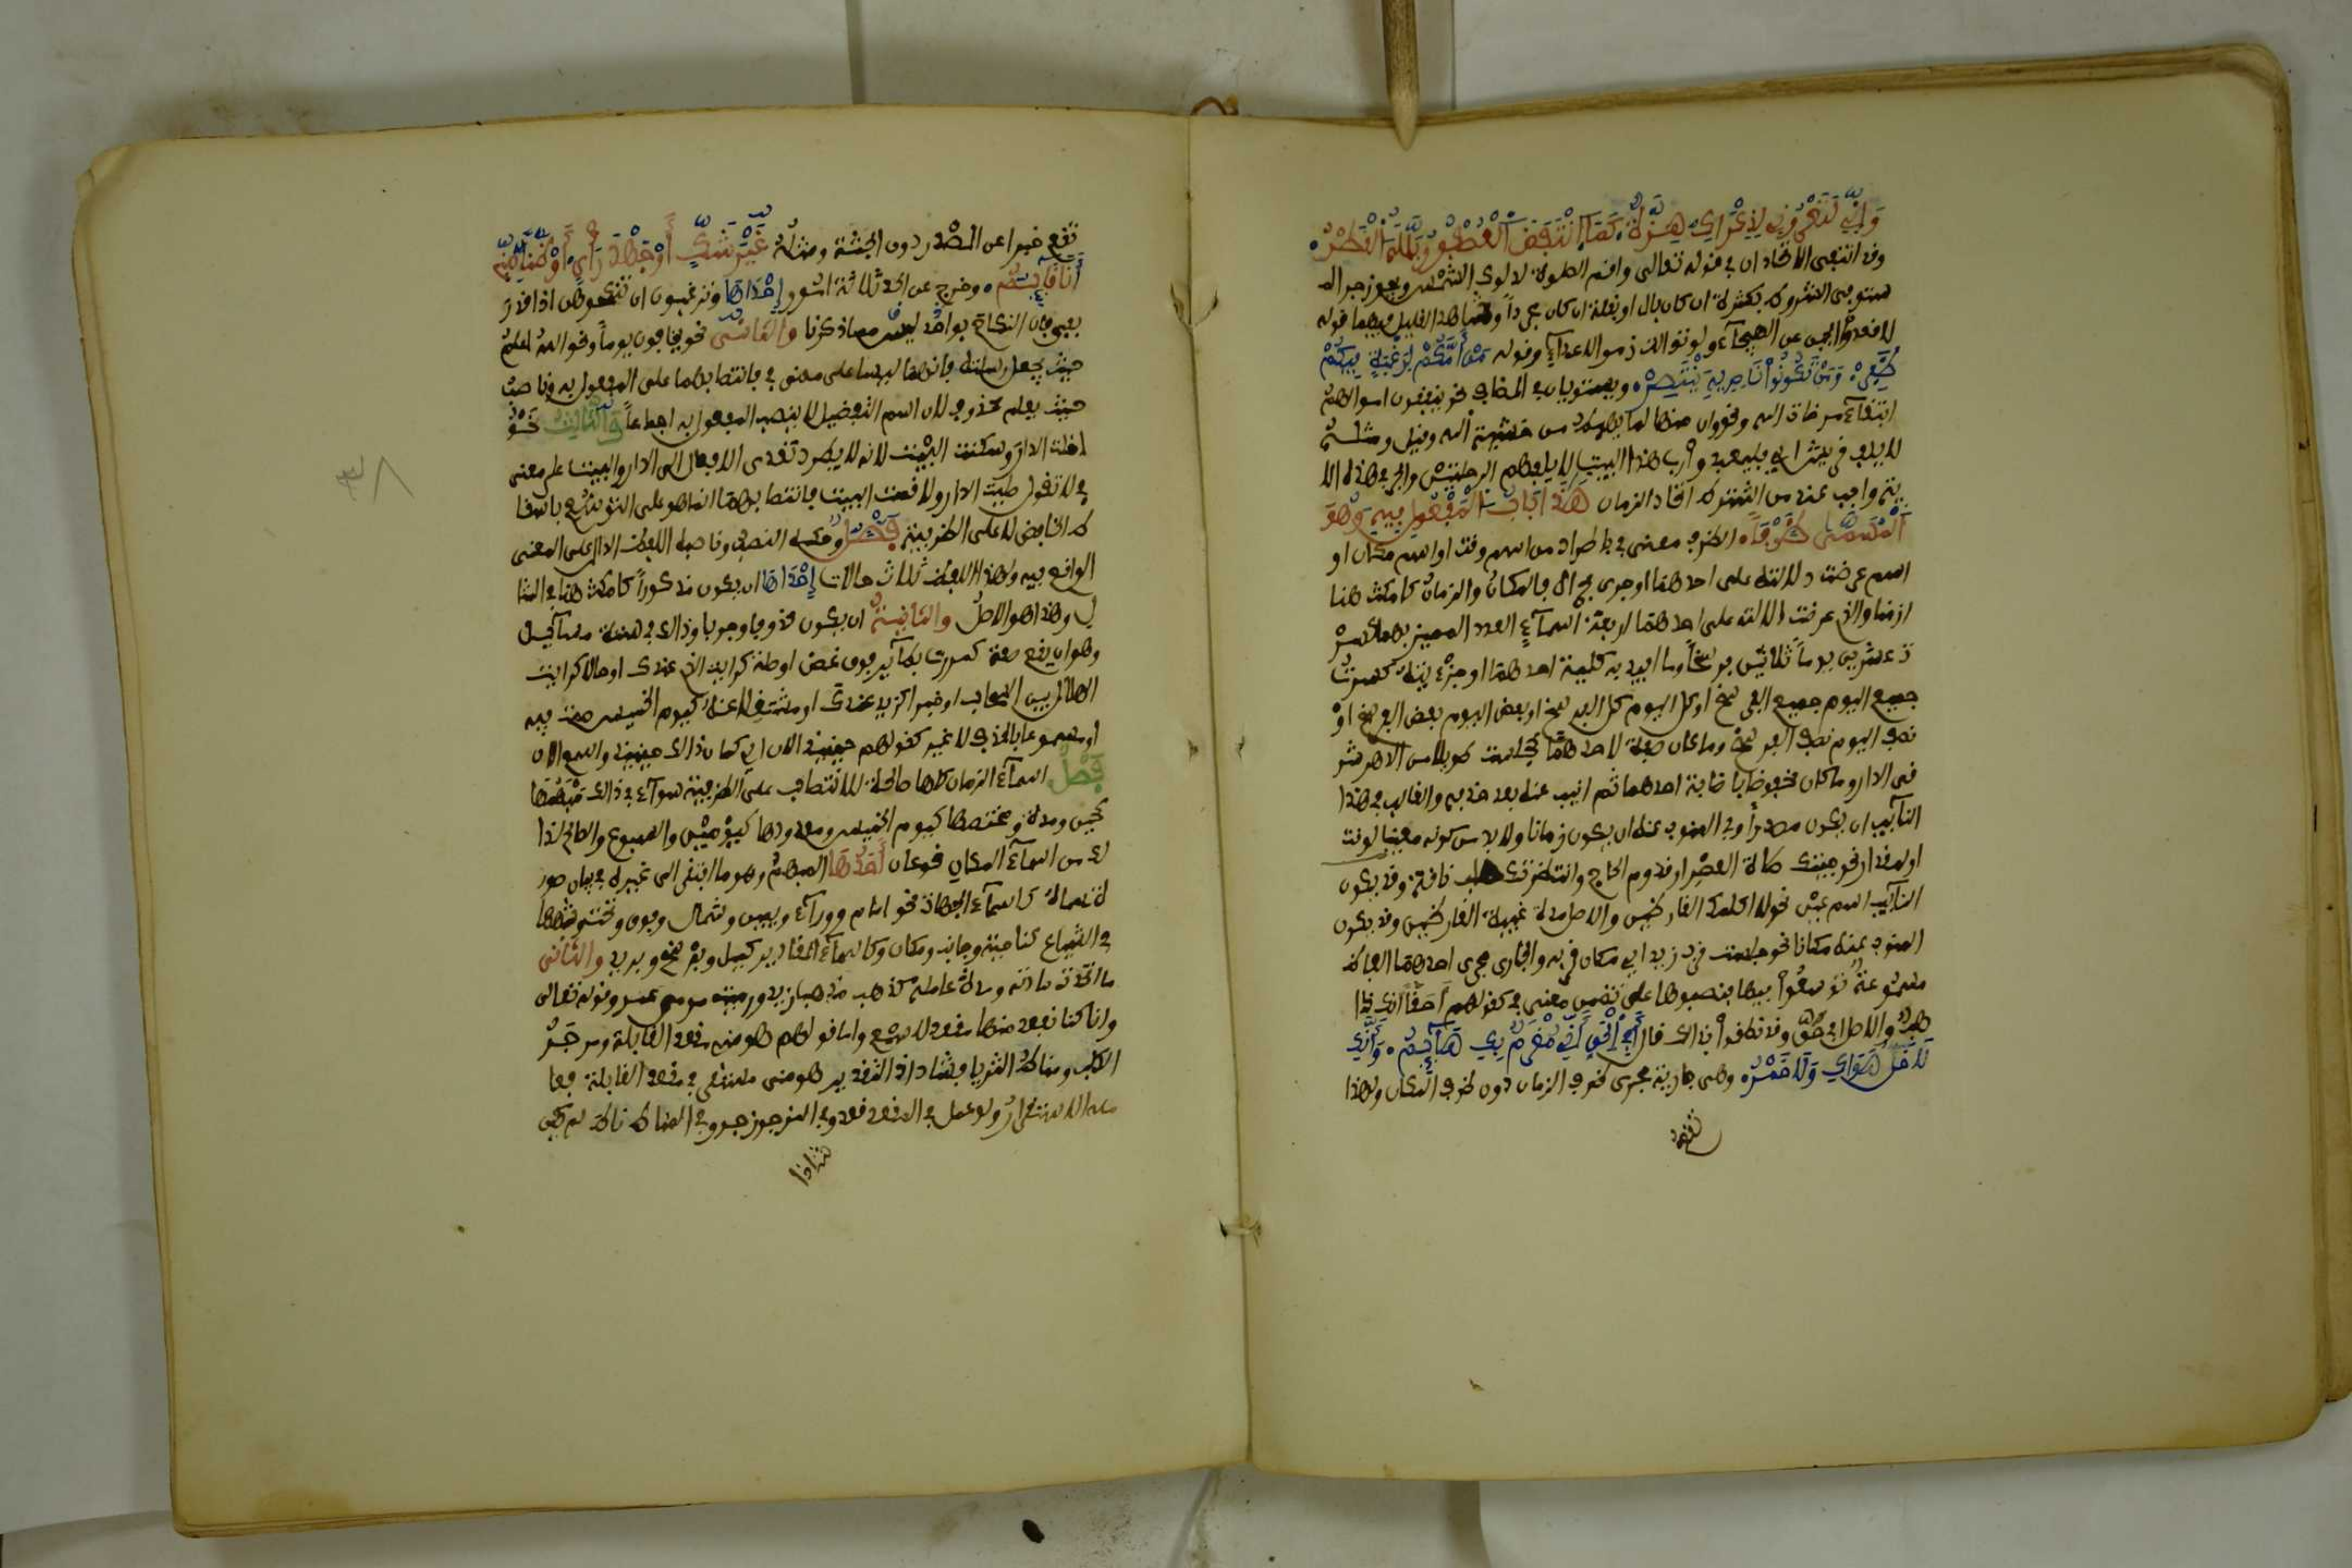 وَإِنِّي لَتَعْرُونِي لِذِكْرَاكِ هِزَّةٌ كَمَا انْتَفَضَ الْعُصْفُورُ بَلَّلَهُ الْقَطْرُ
وقد انتفى الاتحادان في قوله تعالى واقم الصلوة لدلوك الشمس ويجوز جر الم
ستوفي الشروط بكثرة ان كان بال او بقلة ان كان مجرداً وشاهد القليل فيهما قوله
لا اقعد الجبن عن الهيجآء ولو توالت زمر الاعدآء وقوله مَنْ أَمَّكُمْ لِرَغْبَةٍ فِيكُمْ
ظَفِرْ وَمَنْ تَكُونُوا نَاصِرِيهِ يَنْتَصِرْ ويستويان في المضاف نحو ينفقون اموالهم
ابتغآء مرضاة الله ونحو وان منها لما يهبط من خشية الله وقيل ومثله
لايلاف قريش اي فليعبدوا رب هذا البيت لايلافهم الرحلتين والجر في هذه الا
ية واجب عند من اشترط اتحاد الزمان هَذَا بَابُ الْمَفْعُولِ فِيهِ وَهُوَ
الْمُسَمَّى ظَرْفاً الظرف معنى في باطراد من اسم وقت او اسم مكان او
اسم عرضت دلالته على احدهما او جرى مجراه فالمكان والزمان كامكث هنا
ازمنا والذي عرضت دلالته على احدهما اربعة اسمآء العدد المميز بهما كسر
ت عشرين يوماً ثلاثين فرسخاً وما افيد به كلية احدهما او جزئيته كسرت
جميع اليوم جميع الفرسخ او كل اليوم كل الفرسخ او بعض اليوم بعض الفرسخ او
نصف اليوم نصف الفرسخ وما كان صفة لاحدهما كجلست طويلا من الدهر شر
قي الدار وما كان مخفوضا باضافة احدهما ثم انيب عنه بعد حذفه والغالب في هذا
النآيب ان يكون مصدراً وفي المنوب عنه ان يكون زمانا ولا بد من كونه معينا لوقت
او لمقدار نحو جيتك صلاة العصر او قدوم الحاج وانتظرتك حلب ناقة وقد يكون
النآيب اسم عين نحو لا اكلمه القارظين والاصل مدة غيبة القارظين وقد يكون
المنوب عنه مكانا نحو جلست قرب زيد اي مكان قربه والجاري مجرى احدهما الفاظ
مسموعة توسعوا فيها فنصبوها على تضمين معنى في كقولهم أحقاً انك ذا
هب والاصل افي حق وقد نطقوا بذالك قال أَفِي الْحَقِّ أَنِّي مُغْرَمٌ بِكِ هَآئِمٌ وَأَنَّكِ
لَا خَلٌّ هَوَاكِ وَلَا خَمْرُ وهي جارية مجرى ظرف الزمان دون ظرف المكان ولهذا
تقع خبرا عن المصدر دون الجثة ومثله غَيْرَ شَكٍّ أَوْ جَهْدَ رَأْيِي أَوْ ظَنّاً مِنِّي
أَنَّكَ قَائِمٌ وخرج عن الحد ثلاثة امور إحداها وترغبون ان تنكحوهن اذا قدر
بفي فان النكاح بواحد ليس مما ذكرنا والثاني نحو يخافون يوماً ونحو الله اعلم
حيث يجعل رسالته فانهما ليسا على معنى في فانتصابهما على المفعول به وناصب
حيث يعلم محذوف لان اسم التفضيل لا ينصب المفعول به اجماعاً والثالث نحو
دخلت الدار وسكنت البيت لانه لا يطرد تعدي الافعال الى الدار والبيت على معنى
في لا تقول صليت الدار ولا نمت البيت فانتصابهما انما هو على التوسع باسقا
ط الخافض لا على الظرفية فَصْلٌ وحكمه النصب وناصبه اللفظ الدال على المعنى
الواقع فيه ولهذا اللفظ ثلاث حالات إحداها ان يكون مذكوراً كامكث هنا
وهذا هو الاصل والثانية ان يكون محذوفا وجوبا وذالك في
وهو ان يقع صفة كمررت بطآير فوق غصن او صلة كرايت الذي عندك او حالا كرايت
الهلال بين السحاب او خبرا كزيد عندك او مشتغلا عنه كيوم الخميس صمت فيه
او مسموعا بالحذف لا غير كقولهم حينيذ الان اي كان ذالك حينيذ واسمع الان
فَصْلٌ اسمآء الزمان كلها صالحة للانتصاب على الظرفية سوآء في ذالك مبهمها
كحين ومدة ومختصها كيوم الخميس ومعدودها كيومين واسبوع والصالح لذا
لك من اسمآء المكان نوعان أحدها المبهم وهو ما افتقر الى غيره في بيان صور
ة مسماه كاسمآء الجهات نحو امام وورآء ويمين وشمال وفوق وتحت وشبهها
في الشياع كناحية وجانب ومكان وكاسمآء المقادير كميل وفرسخ وبريد والثاني
ما اتحدت مادته ومادة عامله كذهبت مذهب زيد ورميت مرمى عمر وقوله تعالى
وانا كنا نقعد منها مقعد للسمع واما قولهم هو مني مقعد القابلة ومزجر
الكلب ومناط الثريا فشاذ اذ التقدير هو مني مستقر في مقعد القابلة فعا
مله الاستقرار ولو عمل في المقعد قعد وفي المزجر زجر وفي المناط ناط لم يكن
شاذا